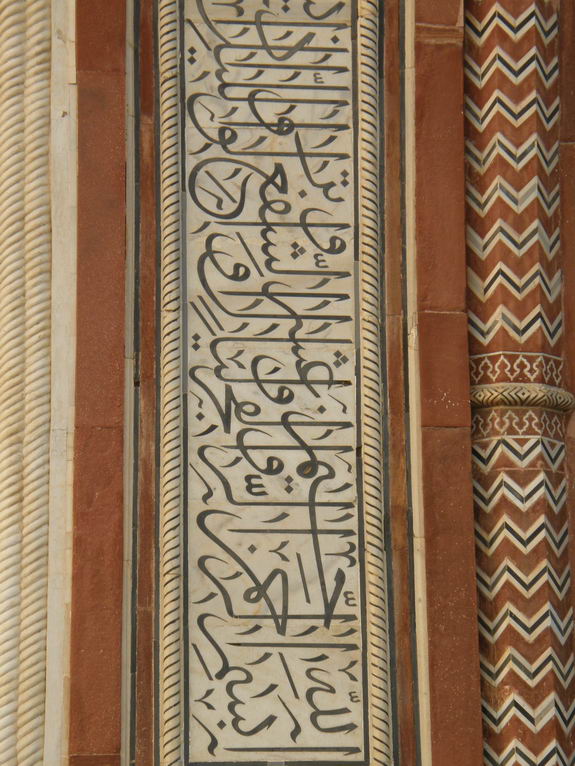 بِسْمِ اللَّهِ الرَّحْمَٰنِ الرَّحِيمِ وَالْفَجْرِ وَلَيَالٍ عَشْرٍ وَالشَّفْعِ وَالْوَتْرِ وَاللَّيْلِ